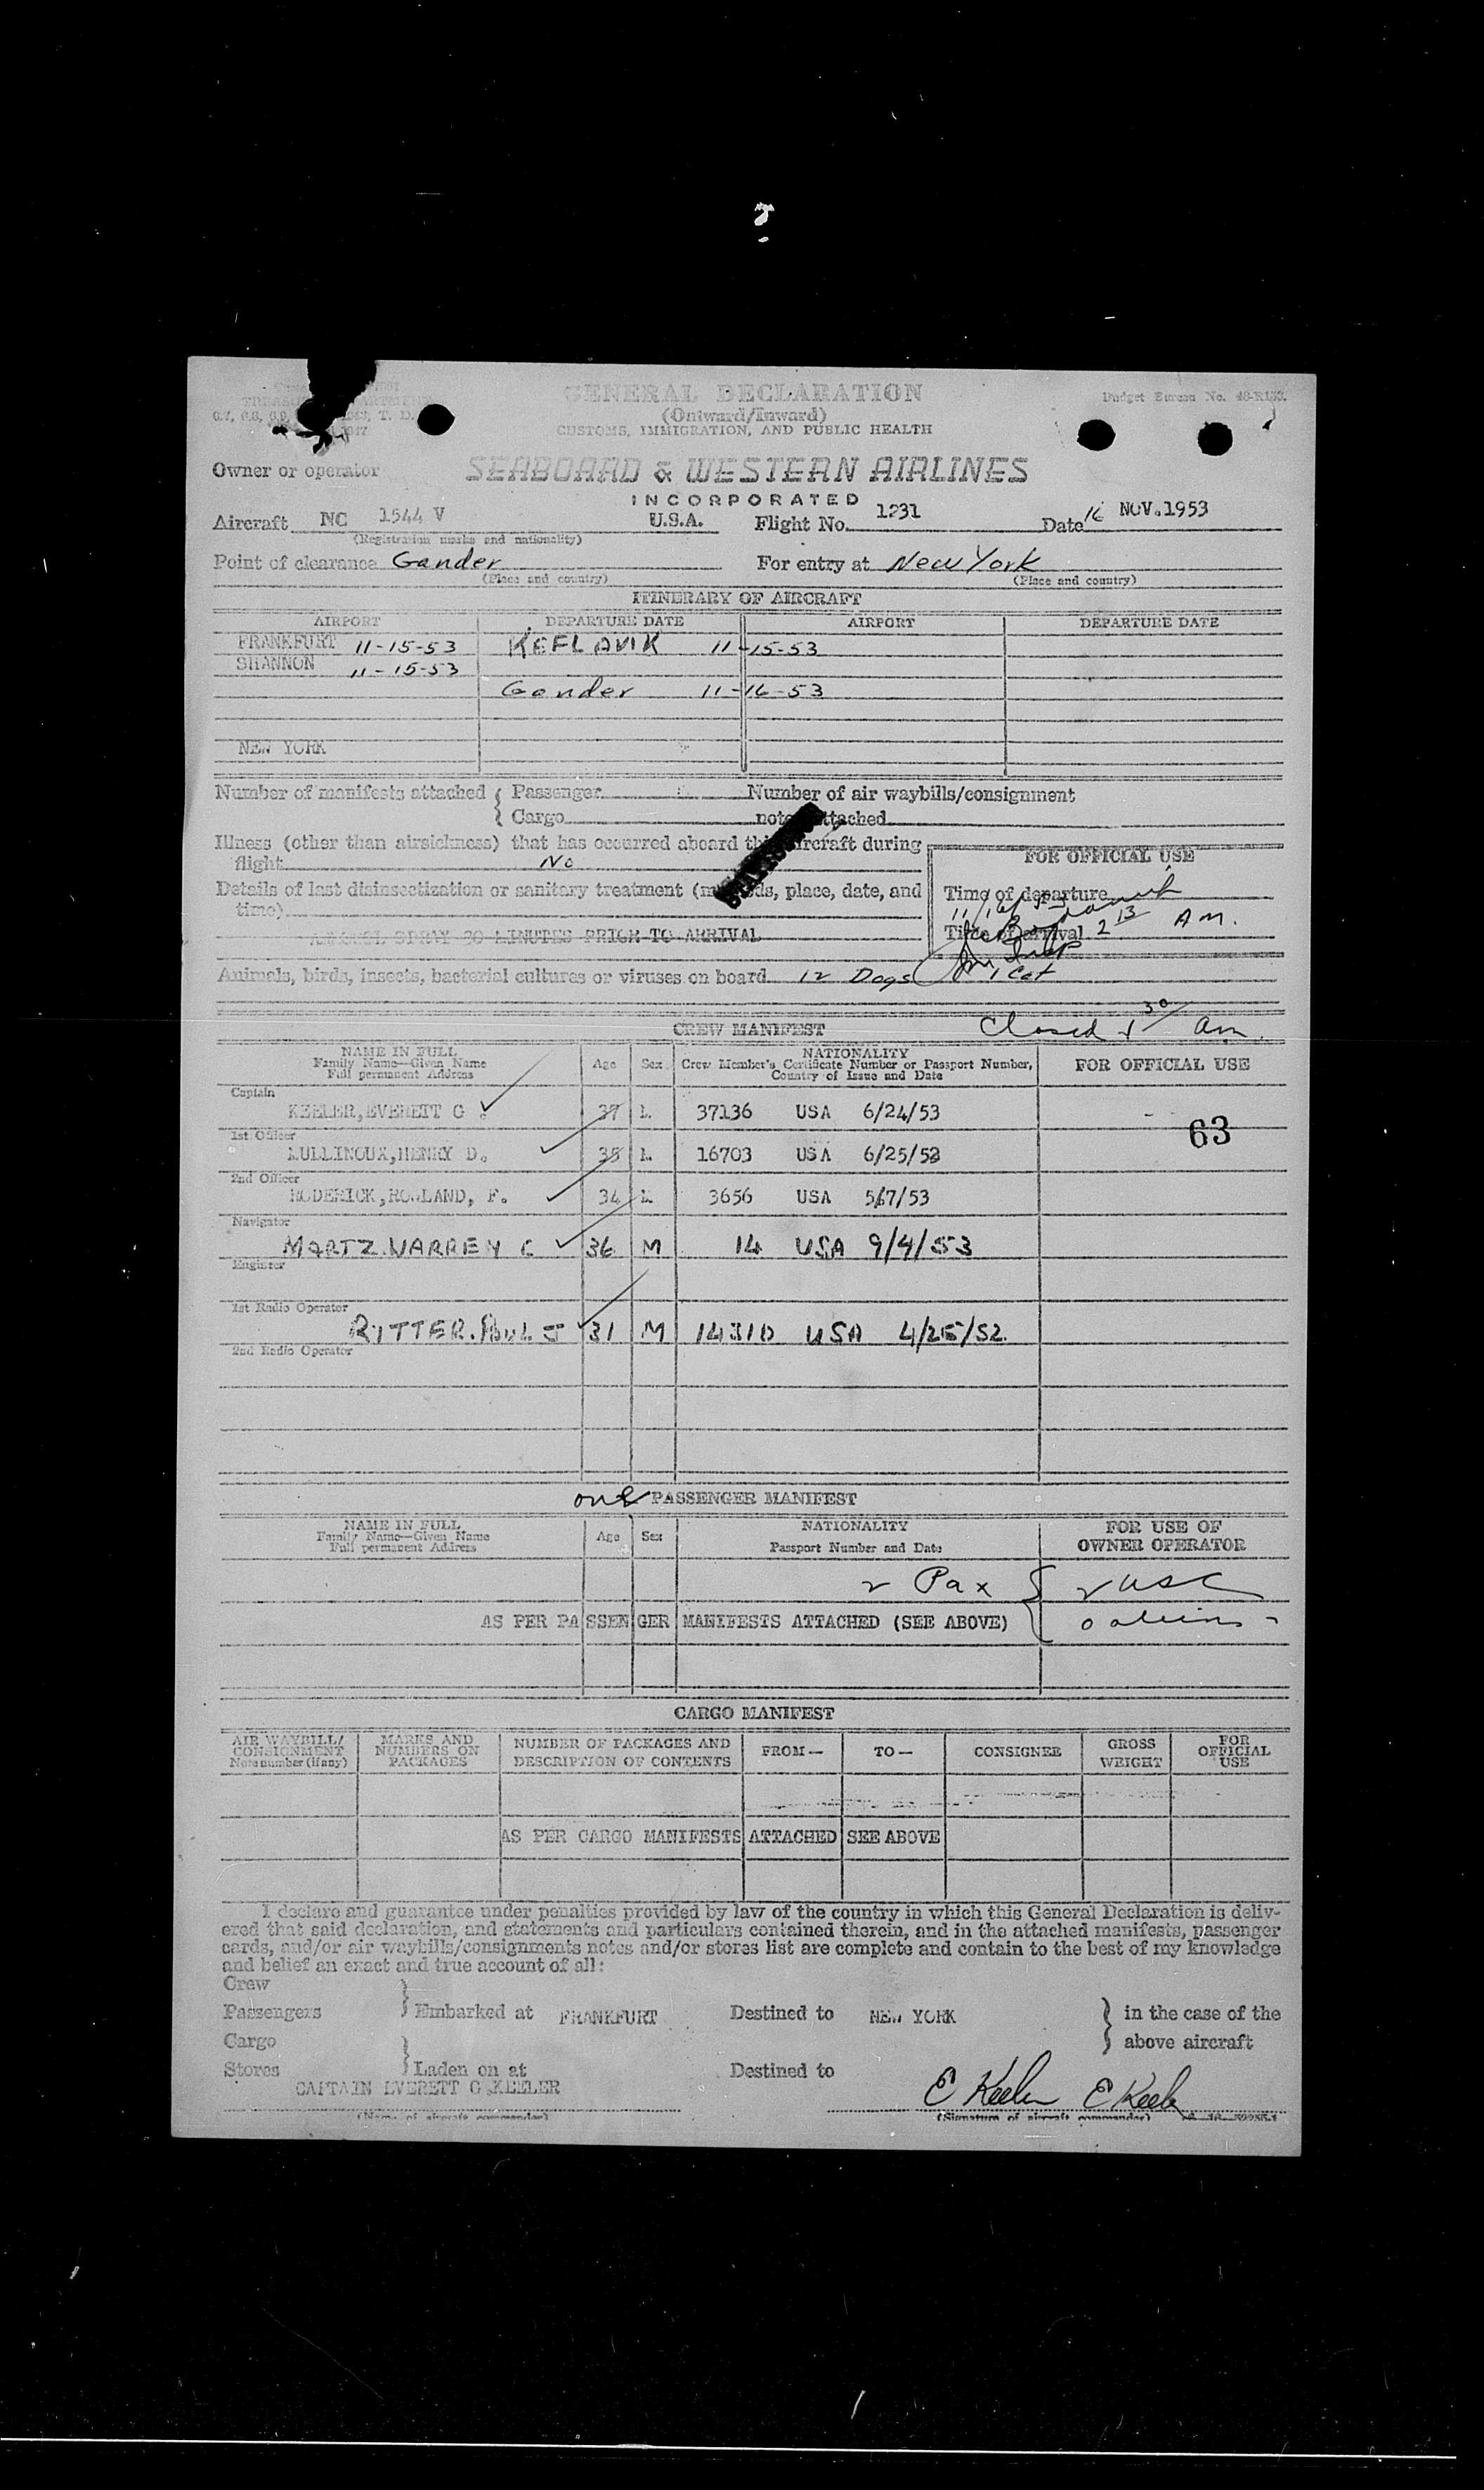 GENERAL DECLARATION
Budget Bureau No.
(Outward/Inward)
CUSTOMS, IMMIGRATION, AND PUBLIC HEALTH
Owner or operator SEABOARD & WESTERN AIRLINES
INCORPORATED
Aircraft NC 1544 V U.S.A. Flight No. 1231 Date 16 NOV.1953
(Registration marks and nationality)
Point of clearance Gander For entry at New York
(Place and country) (Place and country)
ITINERARY OF AIRCRAFT
AIRPORT DEPARTURE DATE AIRPORT DEPARTURE DATE
FRANKFURT 11-15-53 KEFLAVIK 11-15-53
SHANNON 11-15-53
Gander 11-16-53
NEW YORK
Number of manifests attached { Passenger Number of air waybills/consignment
{ Cargo notes attached
Illness (other than airsickness) that has occurred aboard this aircraft during
flight No
FOR OFFICIAL USE
Details of last disinsectization or sanitary treatment (methods, place, date, and
time)
Time of departure
AEROSOL SPRAY 30 MINUTES PRIOR TO ARRIVAL
Time of arrival 2 13 AM.
Animals, birds, insects, bacterial cultures or viruses on board 12 Dogs 1 Cat
CREW MANIFEST
Closed 1 30 am.
NAME IN FULL Age Sex NATIONALITY FOR OFFICIAL USE
Family Name—Given Name Crew Member's Certificate Number or Passport Number,
Full permanent Address Country of Issue and Date
Captain
KEELER,EVERETT G. 37 M 37136 USA 6/24/53
63
1st Officer
MULLINOUX,HENRY D. 35 M 16703 USA 6/25/53
2nd Officer
RODERICK,ROWLAND, F. 34 M 3656 USA
Navigator
MARTZ.WARREN C 36 M 14 USA 9/4/53
Engineer
1st Radio Operator
RITTER.PAUL J 31 M 14310 USA 4/25/52
2nd Radio Operator
one PASSENGER MANIFEST
NAME IN FULL Age Sex NATIONALITY FOR USE OF
Family Name—Given Name OWNER OPERATOR
Full permanent Address Passport Number and Date
2 Pax { 2 USC
AS PER PASSENGER MANIFESTS ATTACHED (SEE ABOVE) 0 aliens
CARGO MANIFEST
AIR WAYBILL/ MARKS AND NUMBER OF PACKAGES AND FROM— TO— CONSIGNEE GROSS FOR
CONSIGNMENT NUMBERS ON DESCRIPTION OF CONTENTS WEIGHT OFFICIAL
Note number (if any) PACKAGES USE
AS PER CARGO MANIFESTS ATTACHED SEE ABOVE
I declare and guarantee under penalties provided by law of the country in which this General Declaration is deliv-
ered that said declaration, and statements and particulars contained therein, and in the attached manifests, passenger
cards, and/or air waybills/consignments notes and/or stores list are complete and contain to the best of my knowledge
and belief an exact and true account of all:
Crew
Passengers } Embarked at FRANKFURT Destined to NEW YORK } in the case of the
Cargo above aircraft
Stores } Laden on at Destined to
CAPTAIN EVERETT G.KEELER E Keeler E Keeler
(Name of aircraft commander) (Signature of aircraft commander)